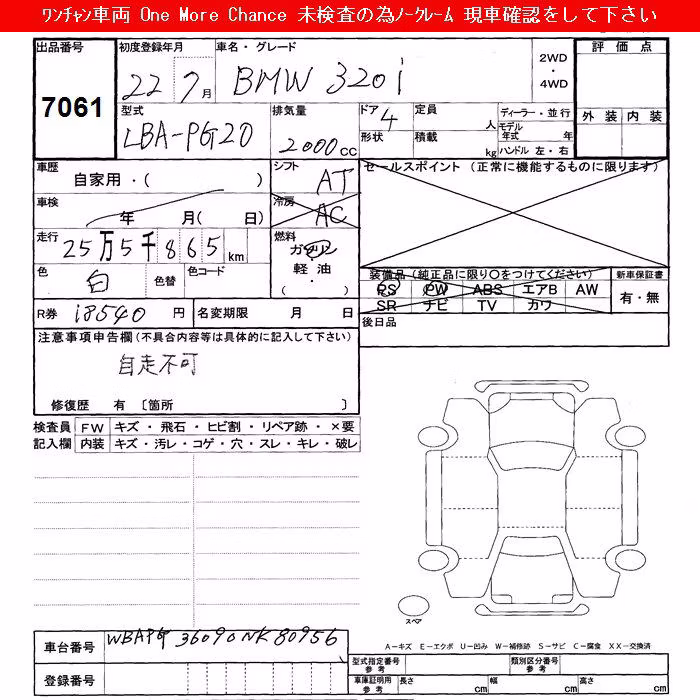 ﾜﾝﾁｬﾝ車両 One More Chance 未検査の為ﾉｰｸﾚｰﾑ 現車確認をして下さい
出品番号 7061
初度登録年月 22 7月
車名・グレード BMW 320i
2WD・4WD
評価点
外装 内装
型式 LBA-PG20
排気量 2000cc
ドア 4
形状
定員 人
積載 kg
ディーラー・並行
モデル年式 年
ハンドル 左・右
車歴 自家用・( )
シフト AT
セールスポイント (正常に機能するものに限ります)
車検 年 月( 日)
冷房 AC
走行 25万5千865km
燃料 ガソリン・軽油・( )
色 白 色替 色コード
装備品 (純正品に限り○をつけてください)
PS PW ABS エアB AW
SR ナビ TV カワ
新車保証書 有・無
R券 18540円 名変期限 月 日
後日品
注意事項申告欄(不具合内容等は具体的に記入して下さい)
自走不可
修復歴 有 〔箇所 〕
検査員記入欄 FW キズ・飛石・ヒビ割・リペア跡・×要
内装 キズ・汚レ・コゲ・穴・スレ・キレ・破レ
スペア
車台番号 WBAPG36090NK80956
登録番号
A－キズ E－エクボ U－凹み W－補修跡 S－サビ C－腐食 XX－交換済
型式指定番号 参考 類別区分番号 参考
車庫証明用 参考 長さ cm 幅 cm 高さ cm